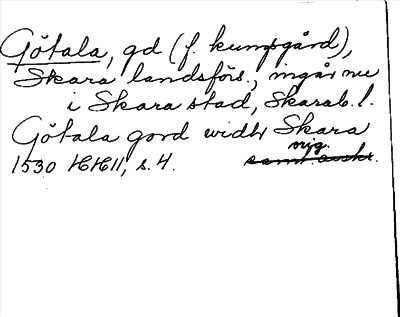 Götala, gd (f. kungsgård),
Skara landsförs., ingår nu
i Skara stad, Skarab. l.
Götala gord widh Skara
1530 HH 11, s. 4. orig.